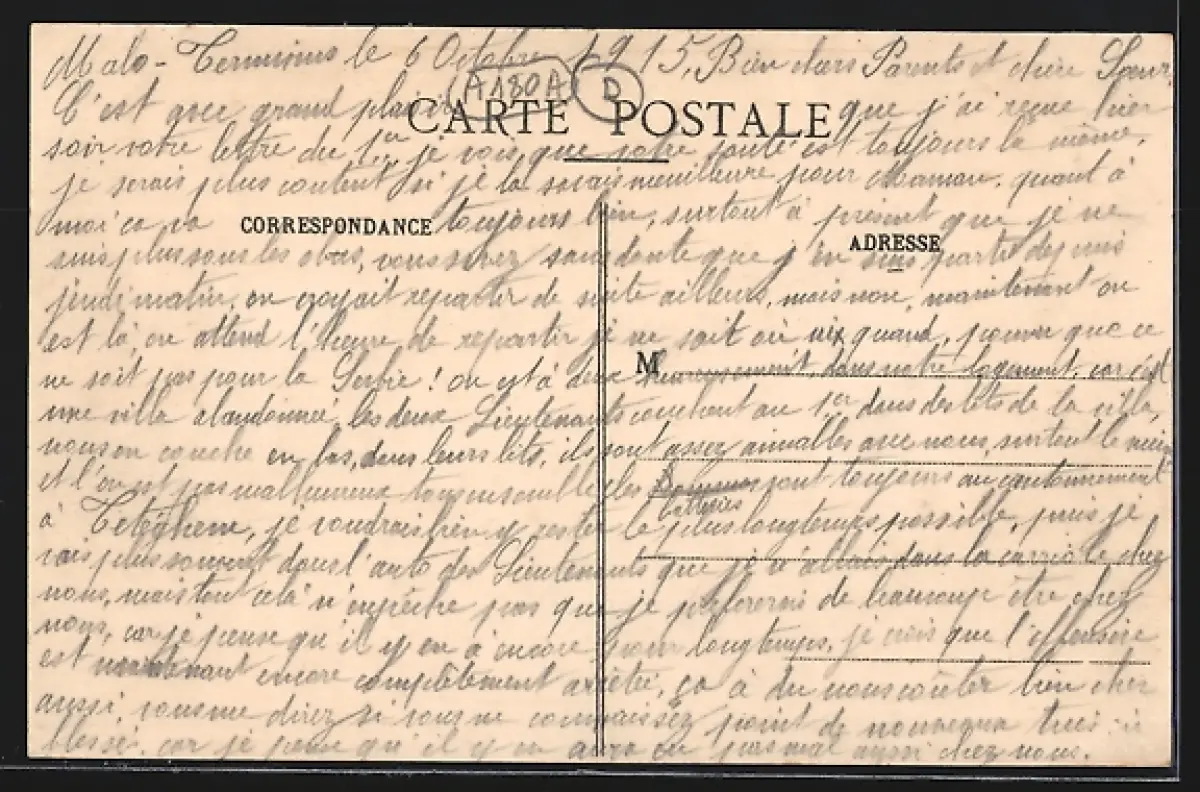 Malo-Terminus le 6 Octobre 1915, Bien chers Parents et chère Soeur,
A180A D
C'est avec grand plaisir que j'ai reçue hier
CARTE POSTALE
soir votre lettre du 1er je vois que votre santé est toujours la même,
je serais plus content si je la savais meuilleure pour Maman, quant à
moi ca va toujours bien, surtout à présent que je ne
CORRESPONDANCE
ADRESSE
suis plus sous les obus, vous savez sans doute que j'en suis partie depuis
jeudi matin, on croyait repartir de suite ailleurs, mais non, maintenant on
est là, on attend l'heure de repartir je ne sait où ni quand, pourvu que ce
M
ne soit pas pour la Serbie ! on est à deux dans notre logement, car c'est
une ville abandonnée, les deux Lieutenants couchent au 1er dans des lits de la ville,
nous on couche en bas, dans leurs lits, ils sont assez aimables avec nous, surtout le mien
et l'on est pas malheureux tous ensemble, les batteries sont toujours au cantonnement
à Teteghem, je voudrais bien y rester le plus longtemps possible, puis je
vais plus souvent dans l'auto des Lieutenants que je n'allais dans la carriole chez
nous, mais tout cela n'empêche pas que je préfererais de beaucoup être chez
nous, car je pense qu'il y en à encore pour longtemps, je crois que l'offensive
est maintenant encore complètement arretée, ça à du nous coûter bien cher
aussi, vous me direz si vous ne connaissez point de nouveaux tués
blessé, car je pense qu'il y en aura eu pas mal aussi chez nous.